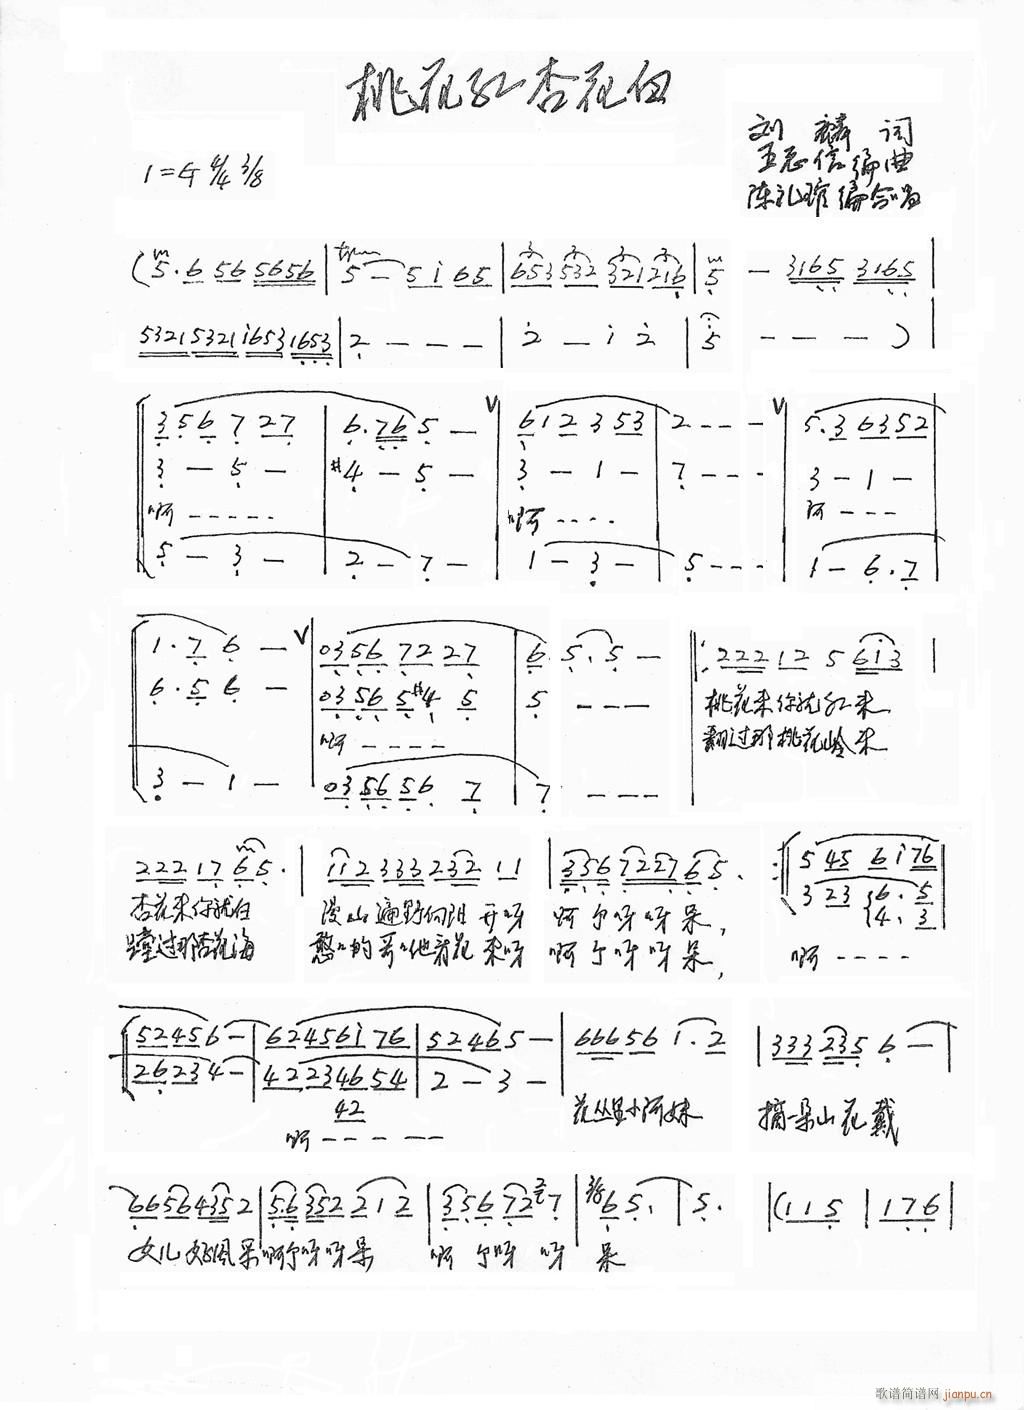 桃花红杏花白
刘麟词
王志信编曲
陈礼瑄编合唱
1= 4/4 3/8
(5·6 56 5656 | 5 — 5 i 65 | 653 532 321 216 | 5 — 3165 3165 |
5321 5321 i653 1653 | 2 — — — — | 2 — i 2 | 5 — — — ) |
3 5 6 7 27 | 6·76 5 — V | 6 1 2 3 53 | 2 - - - V | 5·3 6352
3 — 5 — | #4 — 5 — | 3 — 1 — | 7 - - - | 3 — 1 —
啊 - - - - - 啊 - - - - 啊 - - -
5 — 3 — | 2 — 7 — | 1 — 3 — | 5 - - - | 1 — 6·7
1·7 6 — V | 0356 72 27 | 6 5·5 — | : 222 12 5 6i3 |
6·5 6 — | 0356 5#4 5 | 5 - - - 桃花来你就红来
啊 - - - - 翻过那桃花岭来
3 — 1 — | 0356 56 7 | 7 - - -
222 17 65· | 112 333 232 11 | 3356 7227 65· : | 5 45 6 i 76
3 23 6·5
4·3
杏花来你就白 漫山遍野向阳开呀 啊个呀呀呆,
蹚过那杏花海 憨憨的哥哥他看花来呀 啊个呀呀呆, 啊 - - - -
52456 — | 62456i 76 | 52465 — | 66656 i·2 | 333 235 6 — |
26234 — | 42234654 | 2 — 3 —
42
花丛里小阿妹 摘一朵山花戴
啊 - - - - -
66564352 | 5·6352 212 | 3 56 72 7 | 3/8 6 5· | 5· | (115 | 176 |
女儿好风采啊个呀呀呆 啊个呀呀呆
歌谱简谱网 jianpu.cn